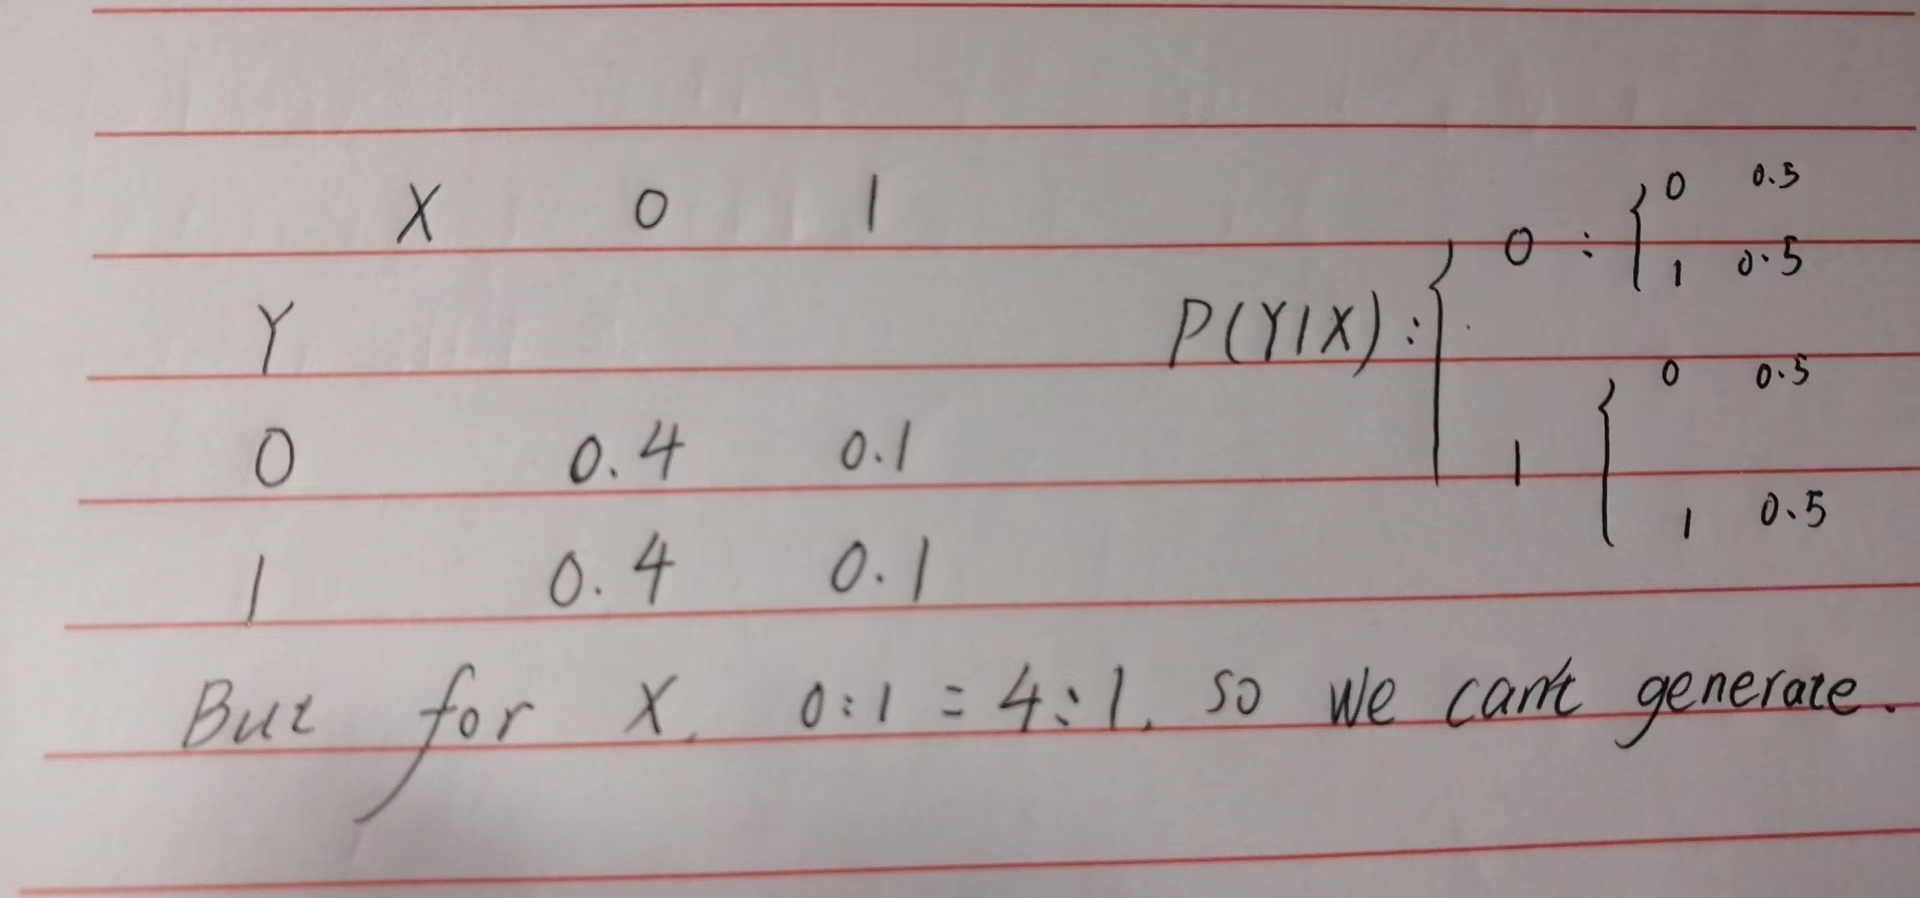 X 0 1
Y
0 0.4 0.1
1 0.4 0.1
P(Y|X) :
0 : 0 0.5
1 0.5
1 0 0.5
1 0.5
But for X. 0:1 = 4:1. so we can't generate.